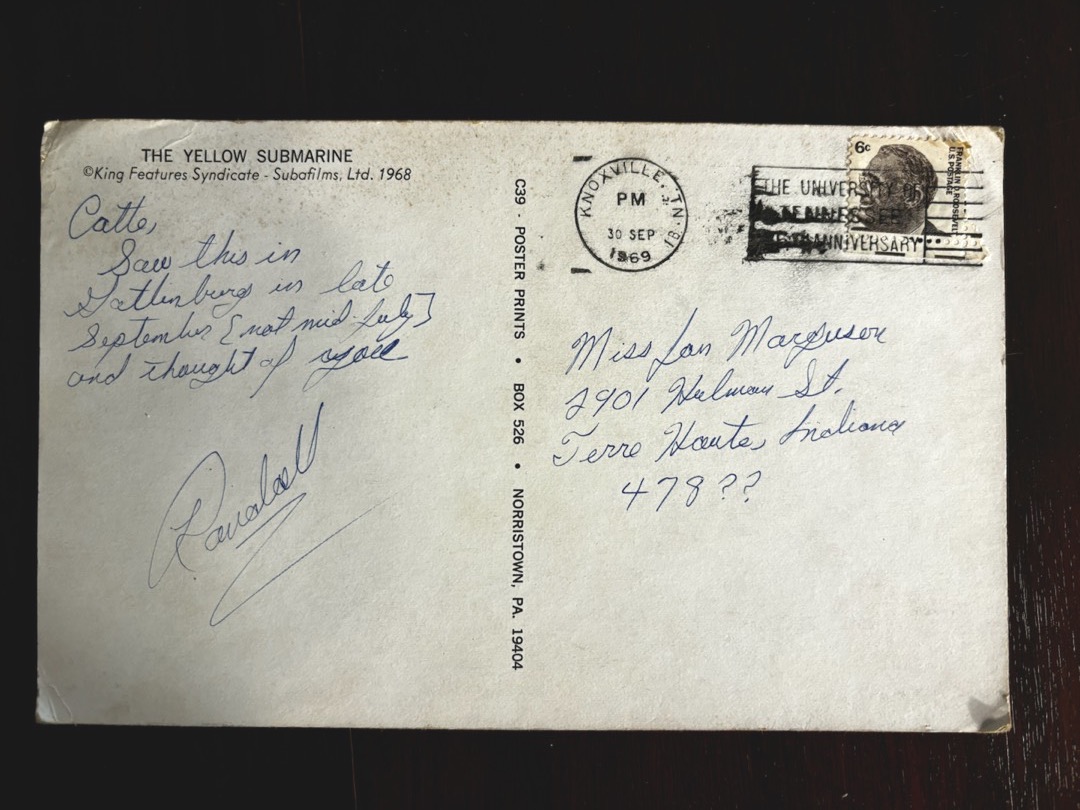 THE YELLOW SUBMARINE
©King Features Syndicate - Subafilms, Ltd. 1968
Catte,
Saw this in
Gatlinburg in late
September [not mid-July]
and thought of you
Randall
C39 · POSTER PRINTS • BOX 526 • NORRISTOWN, PA. 19404
KNOXVILLE, TN
PM
30 SEP
1969
THE UNIVERSITY OF
TENNESSEE
ANNIVERSARY
6c
FRANKLIN D. ROOSEVELT
U.S. POSTAGE
Miss Jan
2901 Hulman St.
Terre Haute, Indiana
478??